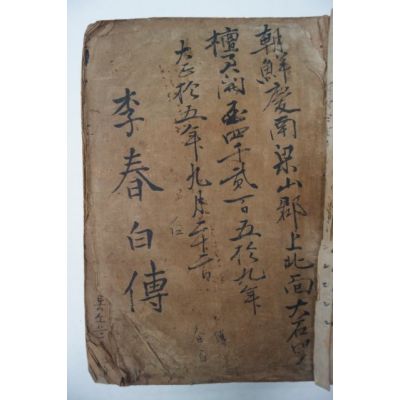 朝鮮慶南梁山郡上北面大石
檀君開國四千貳百五拾九年
大正拾五年九月二十二日
李春白傳